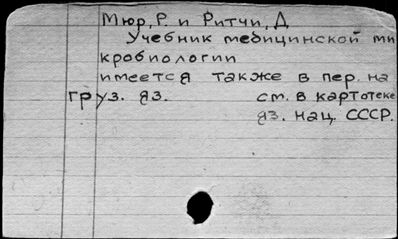 Мюр, Р. и Ритчи, Д
Учебник медицинской ми
кробиологии
имеется также в пер. на
груз. яз. см. в картотеке
яз. нац. СССР.